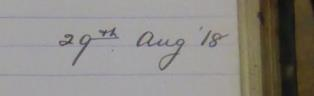 29th Aug '18